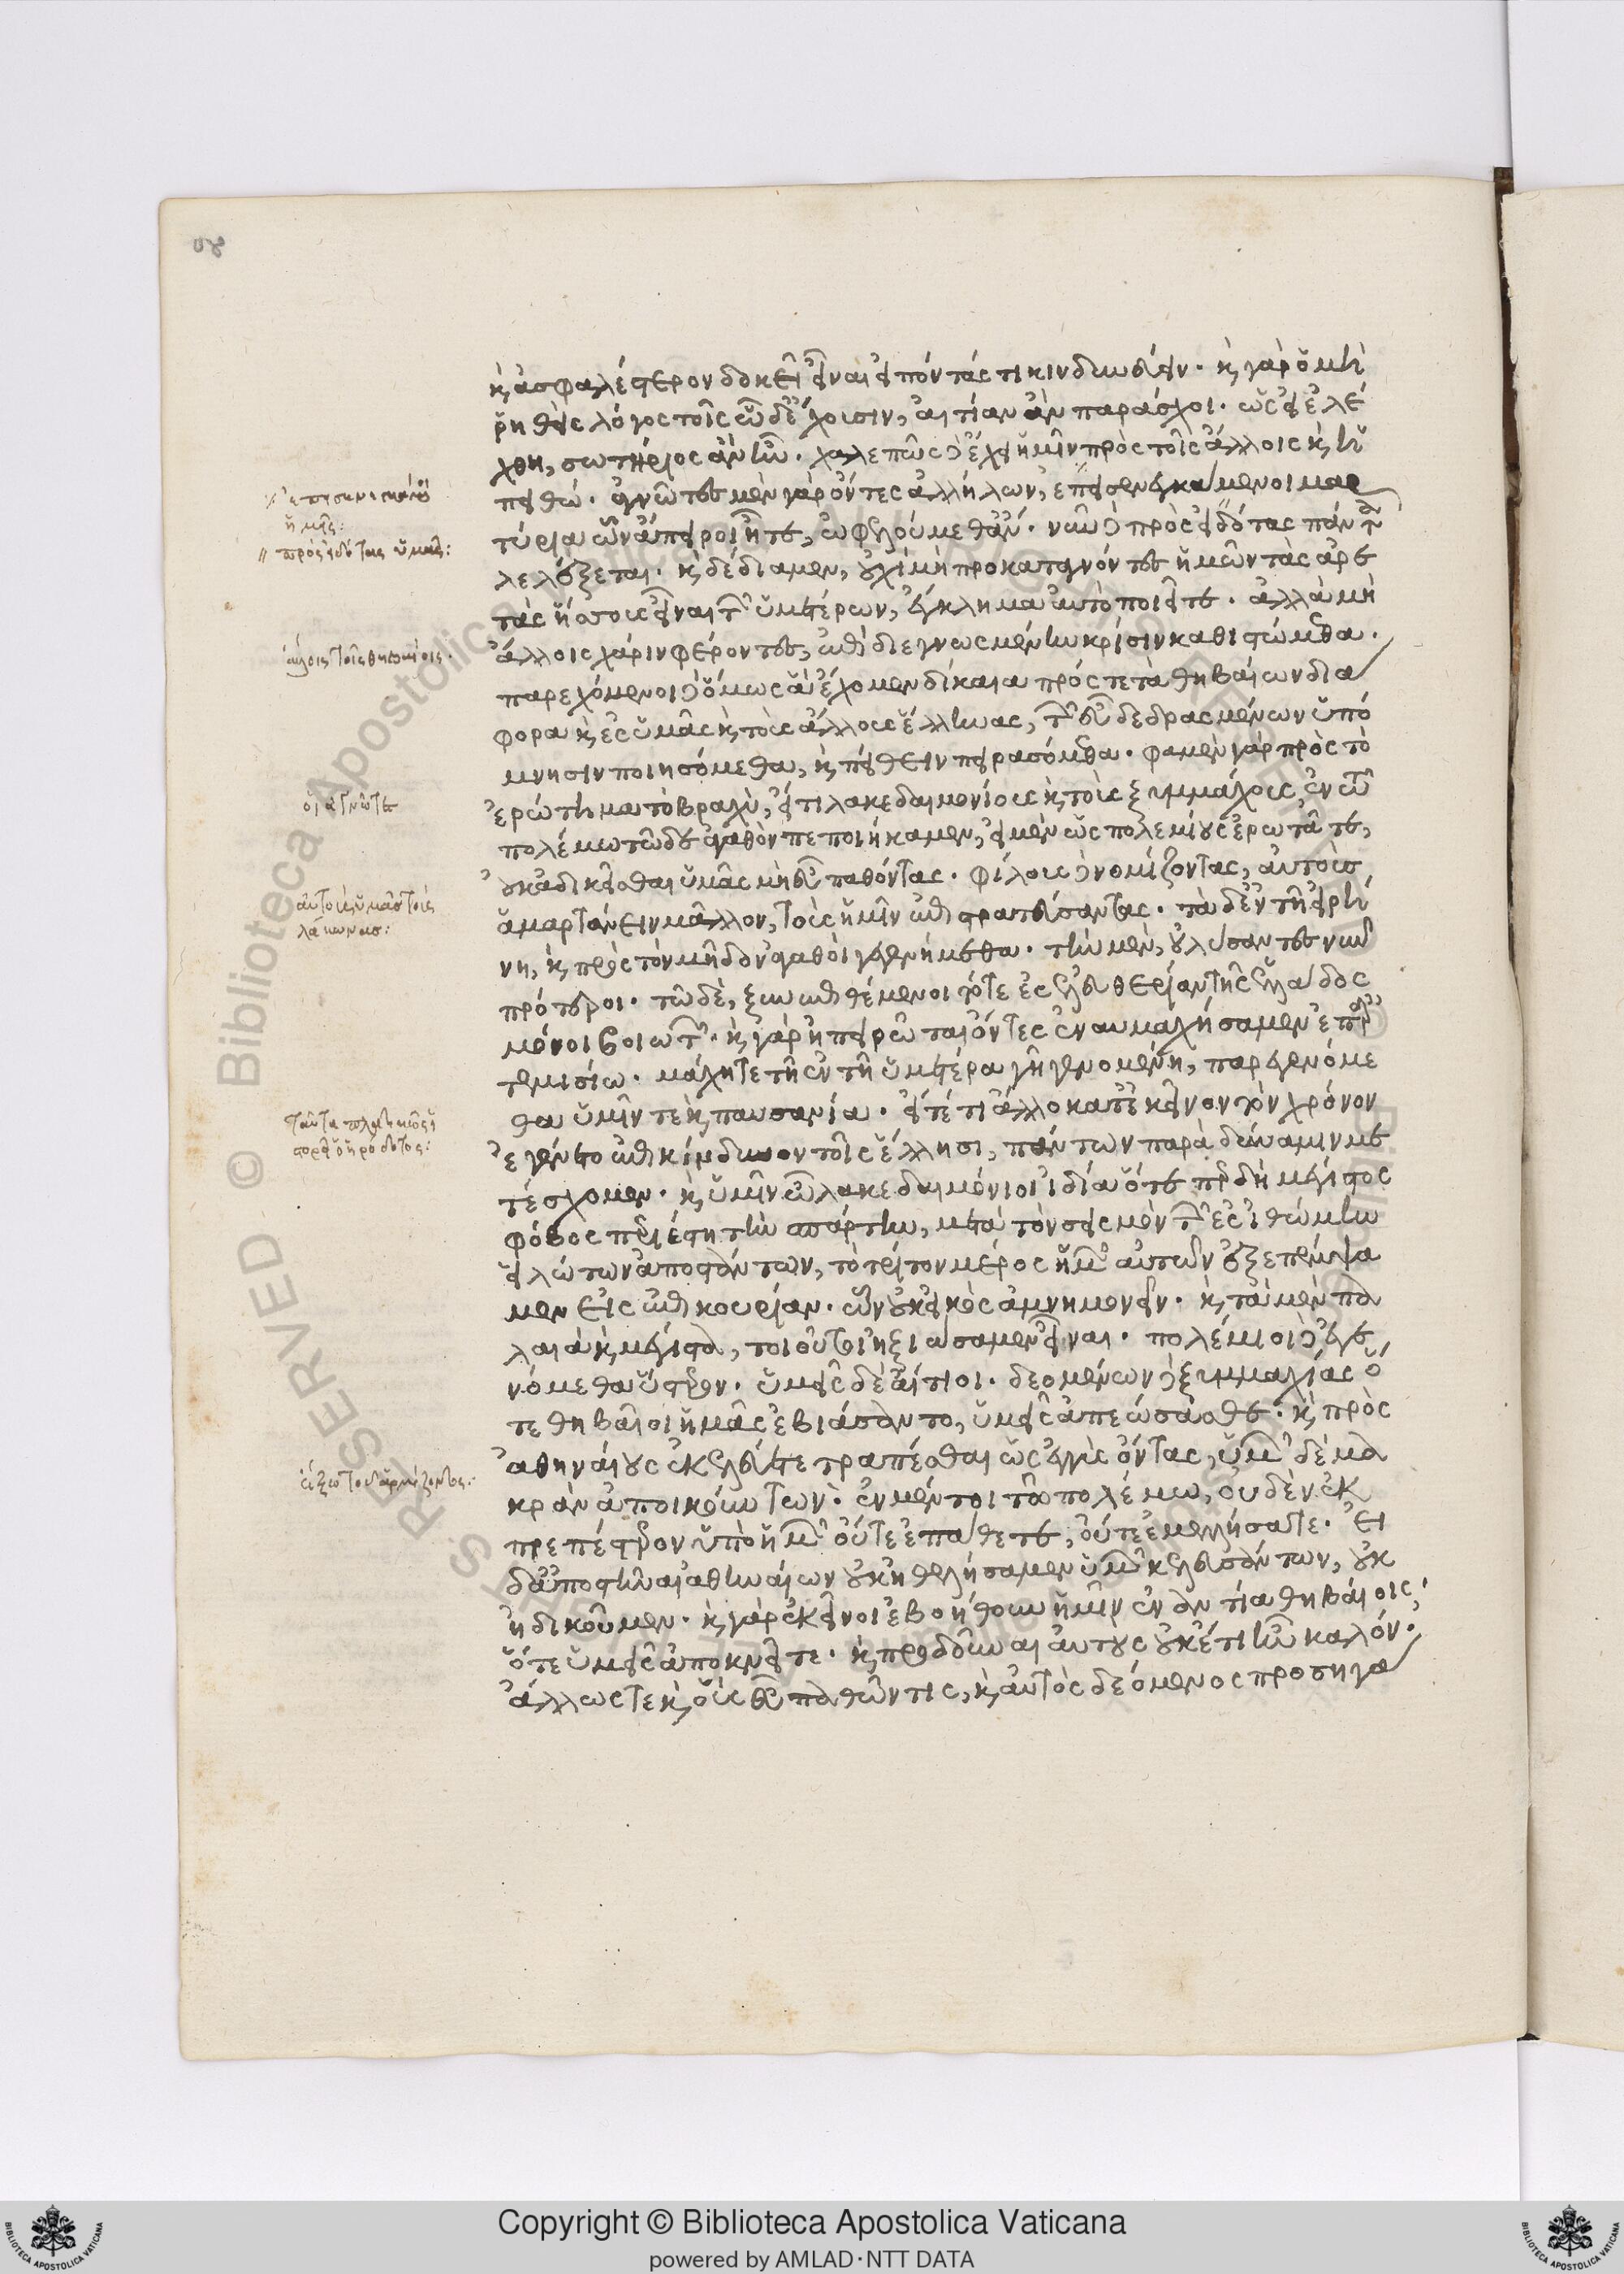 κ ἀσφαλέστερον δοκεῖ εἶναι εἰπόντάς τι κινδυνεύειν. κ γὰρ ὁ μὴ
ῥηθεὶς λόγος τοῖς ὧδ' ἔχουσιν, αἰτίαν ἂν παράσχοι. ὡς εἰ ἐλέ
χθη, σωτήριος ἂν ἦν. χαλεπῶς δὲ ἔχει ἡμῖν πρὸς τοῖς ἄλλοις κ ἡ
πειθώ. ἀγνῶτες μὲν γὰρ ὄντες ἀλλήλων, ἐπεισενεγκάμενοι μαρ
τύρια ὧν ἄπειροι ἦτε, ὠφελούμεθ' ἄν. νῦν δὲ πρὸς εἰδότας πάντα
λελέξεται. κ δέδιαμεν, οὐχὶ μὴ προκαταγνόντες ἡμῶν τὰς ἀρε
τὰς ἥσσους εἶναι τῶν ὑμετέρων, ἔγκλημα αὐτὸ ποιεῖτε. ἀλλὰ μὴ
ἄλλοις χάριν φέροντες, ἐπὶ διεγνωσμένην κρίσιν καθιστώμεθα.
παρεχόμενοι δὲ ὅμως ἃ ἔχομεν δίκαια πρός τε τὰ θηβαίων διά
φορα κ ἐς ὑμᾶς κ τοὺς ἄλλους ἕλληνας, τῶν εὖ δεδρασμένων ὑπό
μνησιν ποιησόμεθα, κ πείθειν πειρασόμεθα. φαμὲν γὰρ πρὸς τὸ
ἐρώτημα τὸ βραχὺ, εἴ τι λακεδαιμονίους κ τοὺς ξυμμάχους ἐν τῷ
πολέμω τῶδε ἀγαθὸν πεποιήκαμεν, εἰ μὲν ὡς πολεμίους ἐρωτᾶτε,
οὐκ ἀδικεῖσθαι ὑμᾶς μὴ εὖ παθόντας. φίλους δὲ νομίζοντας, αὐτοὺς
ἁμαρτάνειν μᾶλλον, τοὺς ἡμῖν ἐπιστρατεύσαντας. τὰ δ' ἐν τῆ εἰρή
νη, κ πρὸς τὸν μῆδον ἀγαθοὶ γεγενήμεθα. τὴν μὲν, οὐ λύσαντες νῦν
πρότεροι. τῶ δὲ, ξυνεπιθέμενοι τότε ἐς ἐλευθερίαν τῆς ἑλλάδος
μόνοι βοιωτῶν. κ γὰρ ἠπειρῶταί ὄντες ἐναυμαχήσαμεν ἐπ' ἀρ
τεμισίω. μάχη τε τῆ ἐν τῆ ὑμετέρα γῆ γενομένη, παρεγενόμε
θα ὑμῖν τε κ παυσανία. εἴ τέ τι ἄλλο κατ' ἐκεῖνον τὸν χρόνον
ἐγένετο ἐπικίνδυνον τοῖς ἕλλησι, πάντων παρὰ δύναμιν με
τέσχομεν. κ ὑμῖν ὦ λακεδαιμόνιοι ἰδία ὅτε περ δὴ μέγιστος
φόβος περιέστη τὴν σπάρτην, μετὰ τὸν σεισμὸν τῶν ἐς ἰθώμην
εἱλώτων ἀποστάντων, τὸ τρίτον μέρος ἡμῶν αὐτῶν ἐξεπέμψα
μεν εἰς ἐπικουρίαν. ὧν οὐκ εἰκὸς ἀμνημονεῖν. κ τὰ μὲν πα
λαιὰ κ μέγιστα, τοιοῦτοι ἠξιώσαμεν εἶναι. πολέμιοι δὲ ἐγε
νόμεθα ὕστερον. ὑμεῖς δὲ αἴτιοι. δεομένων δὲ ξυμμαχίας ὅ
τε θηβαῖοι ἡμᾶς ἐβιάσαντο, ὑμεῖς ἀπεώσασθε. κ πρὸς
ἀθηναίους ἐκελεύετε τραπέσθαι ὡς ἐγγὺς ὄντας, ὑμῶν δὲ μα
κρὰν ἀποικούντων. ἐν μέντοι τῶ πολέμω, οὐδὲν ἐκ
πρεπέστερον ὑπὸ ἡμῶν οὔτε ἐπάθετε, οὔτε ἐμελλήσατε. Εἰ
δ' ἀποστῆναι ἀθηναίων οὐκ ἠθελήσαμεν ὑμῶν κελευσάντων, οὐκ
ἠδικοῦμεν. κ γὰρ ἐκεῖνοι ἐβοήθουν ἡμῖν ἐναντία θηβαίοις,
ὅτε ὑμεῖς ἀποκνεῖτε. κ προδοῦναι αὐτοὺς οὐκέτι ἦν καλόν.
ἄλλως τε κ οὓς εὖ παθών τις, κ αὐτὸς δεόμενος προσηγά
ἡμεῖς:
πρὸς εἰδότας ὑμᾶς:
ἄλλοις τοῖς θηβαίοις.
αὐτοὺς ὑμᾶς τοὺς
λάκωνας: